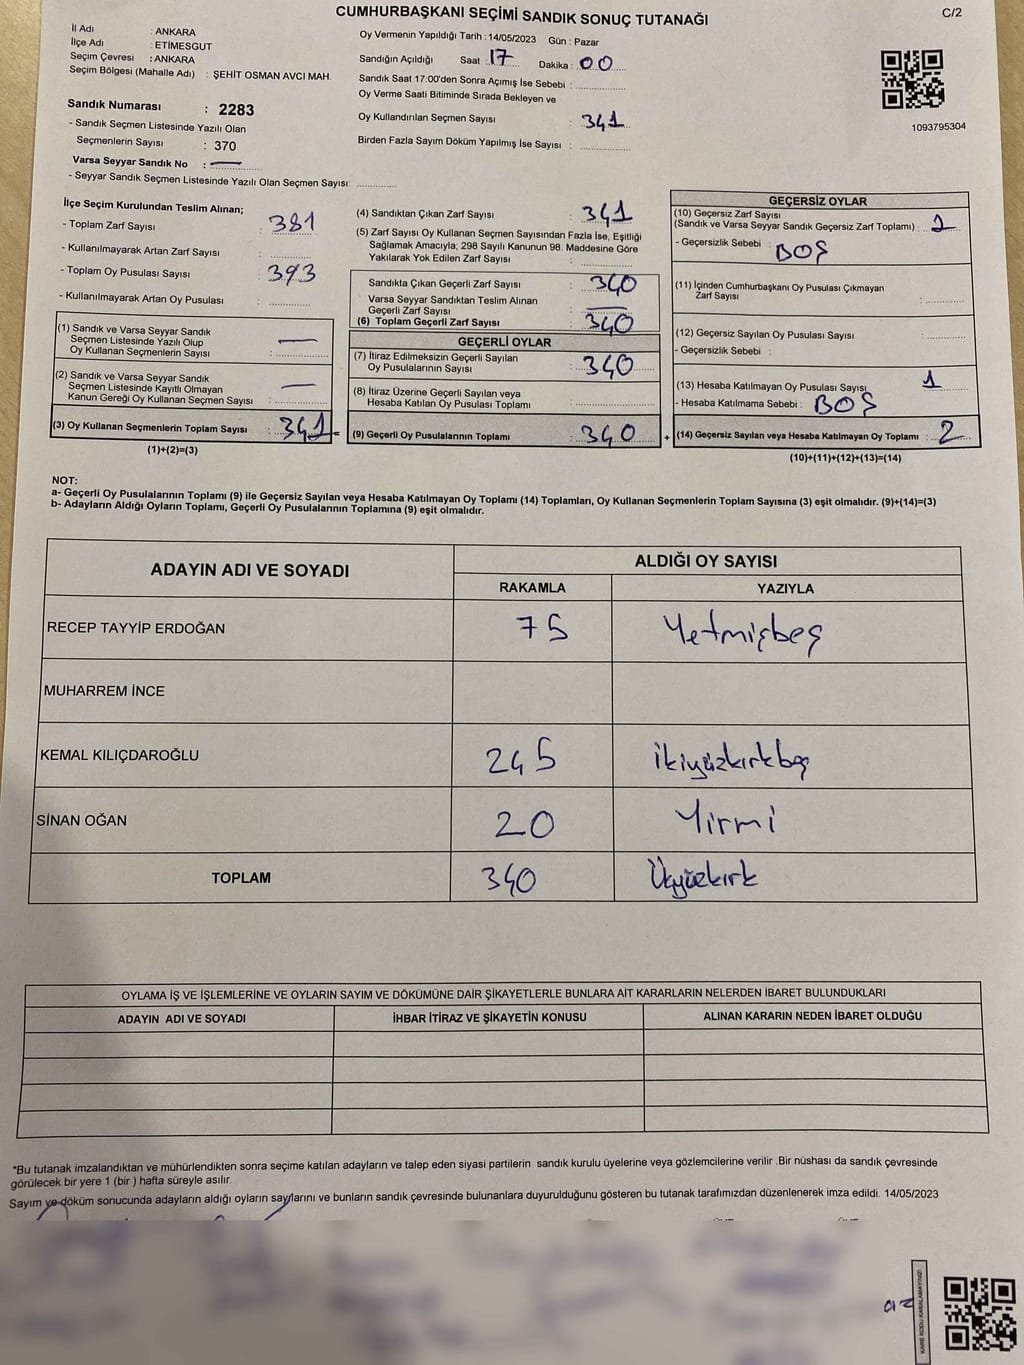 CUMHURBAŞKANI SEÇİMİ SANDIK SONUÇ TUTANAĞI
C/2
İl Adı : ANKARA
İlçe Adı : ETİMESGUT
Seçim Çevresi : ANKARA
Seçim Bölgesi (Mahalle Adı) : ŞEHİT OSMAN AVCI MAH.
Sandık Numarası : 2283
- Sandık Seçmen Listesinde Yazılı Olan
Seçmenlerin Sayısı : 370
Varsa Seyyar Sandık No : —
- Seyyar Sandık Seçmen Listesinde Yazılı Olan Seçmen Sayısı: ............
Oy Vermenin Yapıldığı Tarih : 14/05/2023 Gün : Pazar
Sandığın Açıldığı Saat : 17 Dakika : 00
Sandık Saat 17:00'den Sonra Açımış İse Sebebi : ............
Oy Verme Saati Bitiminde Sırada Bekleyen ve
Oy Kullandırılan Seçmen Sayısı : 341
Birden Fazla Sayım Döküm Yapılmış İse Sayısı : ............
1093795304
İlçe Seçim Kurulundan Teslim Alınan;
- Toplam Zarf Sayısı : 381
- Kullanılmayarak Artan Zarf Sayısı : ............
- Toplam Oy Pusulası Sayısı : 393
- Kullanılmayarak Artan Oy Pusulası : ............
(1) Sandık ve Varsa Seyyar Sandık
Seçmen Listesinde Yazılı Olup
Oy Kullanan Seçmenlerin Sayısı : —
(2) Sandık ve Varsa Seyyar Sandık
Seçmen Listesinde Kayıtlı Olmayan
Kanun Gereği Oy Kullanan Seçmen Sayısı : —
(3) Oy Kullanan Seçmenlerin Toplam Sayısı : 341 =
(1)+(2)=(3)
(4) Sandıktan Çıkan Zarf Sayısı : 341
(5) Zarf Sayısı Oy Kullanan Seçmen Sayısından Fazla İse, Eşitliği
Sağlamak Amacıyla; 298 Sayılı Kanunun 98. Maddesine Göre
Yakılarak Yok Edilen Zarf Sayısı : ............
Sandıkta Çıkan Geçerli Zarf Sayısı : 340
Varsa Seyyar Sandıktan Teslim Alınan
Geçerli Zarf Sayısı : —
(6) Toplam Geçerli Zarf Sayısı : 340
GEÇERLİ OYLAR
(7) İtiraz Edilmeksizin Geçerli Sayılan
Oy Pusulalarının Sayısı : 340
(8) İtiraz Üzerine Geçerli Sayılan veya
Hesaba Katılan Oy Pusulası Toplamı : ............
(9) Geçerli Oy Pusulalarının Toplamı : 340 +
GEÇERSİZ OYLAR
(10) Geçersiz Zarf Sayısı
(Sandık ve Varsa Seyyar Sandık Geçersiz Zarf Toplamı) : 1
- Geçersizlik Sebebi : BOŞ
(11) İçinden Cumhurbaşkanı Oy Pusulası Çıkmayan
Zarf Sayısı : ............
(12) Geçersiz Sayılan Oy Pusulası Sayısı : ............
- Geçersizlik Sebebi :
(13) Hesaba Katılmayan Oy Pusulası Sayısı : 1
- Hesaba Katılmama Sebebi : BOŞ
(14) Geçersiz Sayılan veya Hesaba Katılmayan Oy Toplamı : 2
(10)+(11)+(12)+(13)=(14)
NOT:
a- Geçerli Oy Pusulalarının Toplamı (9) ile Geçersiz Sayılan veya Hesaba Katılmayan Oy Toplamı (14) Toplamları, Oy Kullanan Seçmenlerin Toplam Sayısına (3) eşit olmalıdır. (9)+(14)=(3)
b- Adayların Aldığı Oyların Toplamı, Geçerli Oy Pusulalarının Toplamına (9) eşit olmalıdır.
ADAYIN ADI VE SOYADI ALDIĞI OY SAYISI
RAKAMLA YAZIYLA
RECEP TAYYİP ERDOĞAN 75 Yetmişbeş
MUHARREM İNCE
KEMAL KILIÇDAROĞLU 245 İkiyüzkırkbeş
SİNAN OĞAN 20 Yirmi
TOPLAM 340 Üçyüzkırk
OYLAMA İŞ VE İŞLEMLERİNE VE OYLARIN SAYIM VE DÖKÜMÜNE DAİR ŞİKAYETLERLE BUNLARA AİT KARARLARIN NELERDEN İBARET BULUNDUKLARI
ADAYIN ADI VE SOYADI İHBAR İTİRAZ VE ŞİKAYETİN KONUSU ALINAN KARARIN NEDEN İBARET OLDUĞU
*Bu tutanak imzalandıktan ve mühürlendikten sonra seçime katılan adayların ve talep eden siyasi partilerin sandık kurulu üyelerine veya gözlemcilerine verilir .Bir nüshası da sandık çevresinde
görülecek bir yere 1 (bir ) hafta süreyle asılır.
Sayım ve döküm sonucunda adayların aldığı oyların sayılarını ve bunların sandık çevresinde bulunanlara duyurulduğunu gösteren bu tutanak tarafımızdan düzenlenerek imza edildi. 14/05/2023
KARE KODU KARALAMAYINIZ!